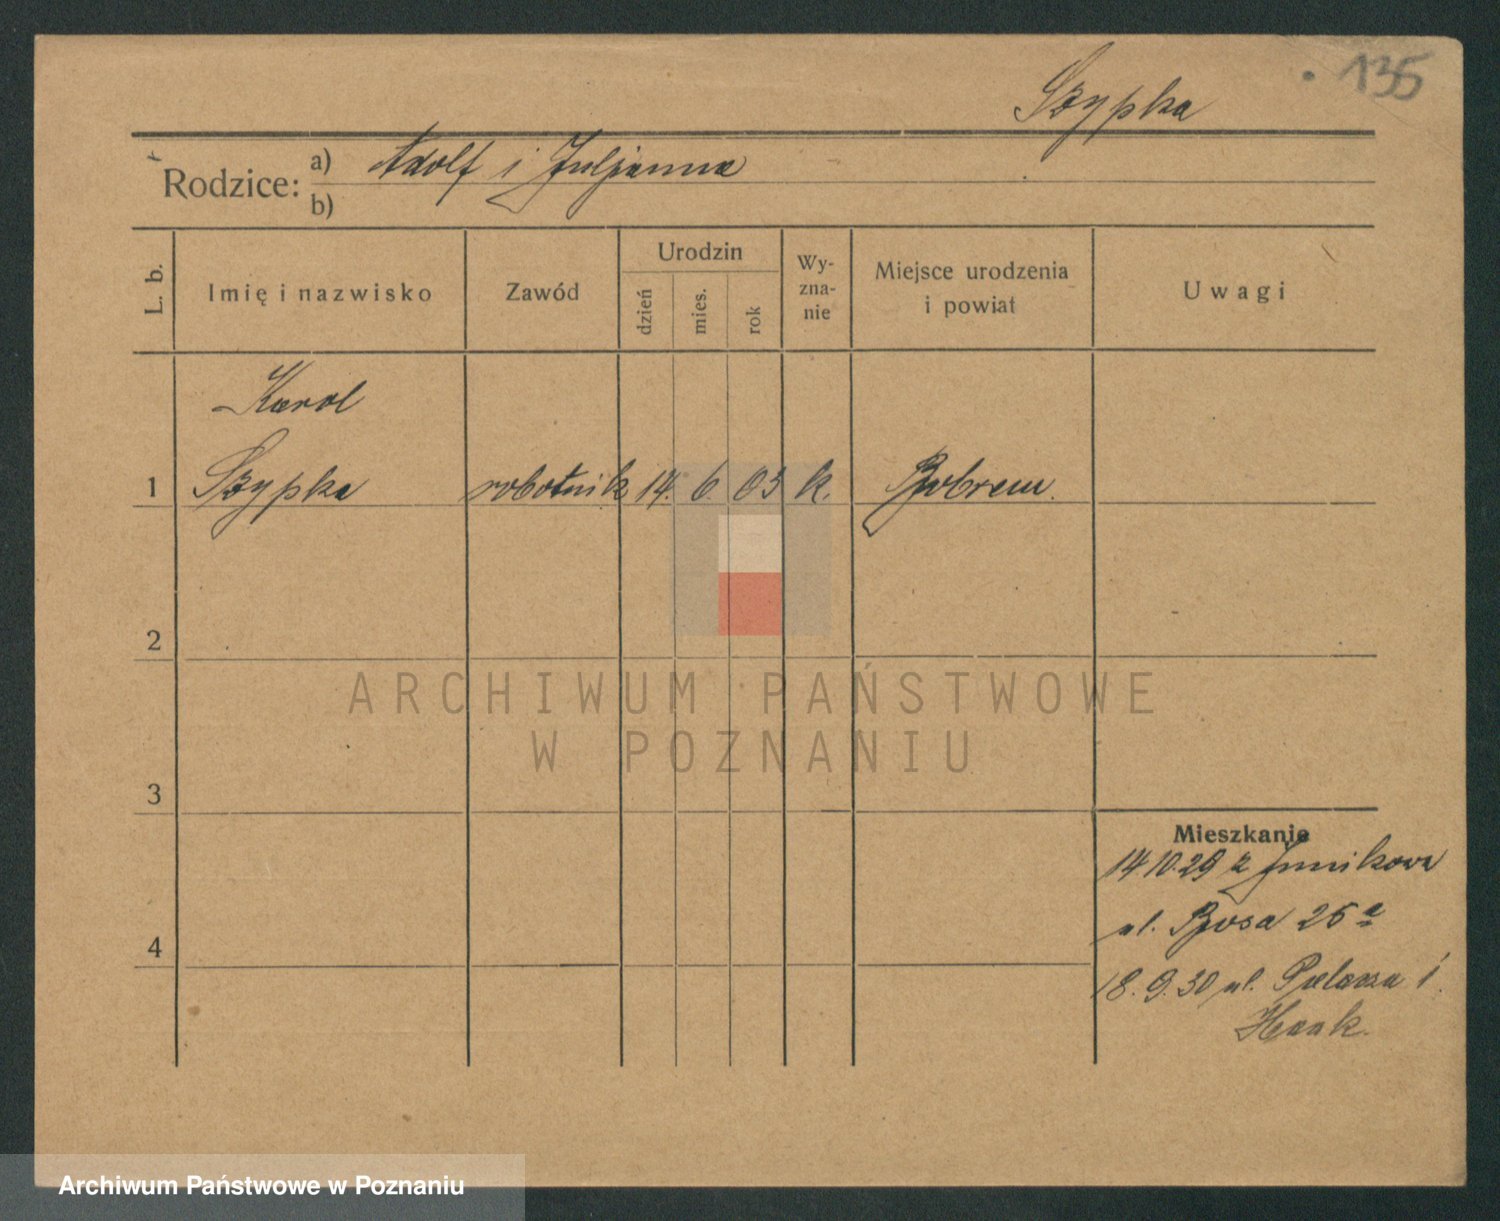 135
Szypka
Rodzice: a) Adolf i Juljanna
b)
L. b. Imię i nazwisko Zawód Urodzin dzień mies. rok Wy-zna-nie Miejsce urodzenia i powiat Uwagi
Karol
1 Szypka robotnik 14. 6. 03 k. Bobrem.
2
ARCHIWUM PAŃSTWOWE
W POZNANIU
3
Mieszkanie
14.10.29 z Junikowa
ul. Bosa 25a
4
18.9.30 ul. Palacza
Archiwum Państwowe w Poznaniu